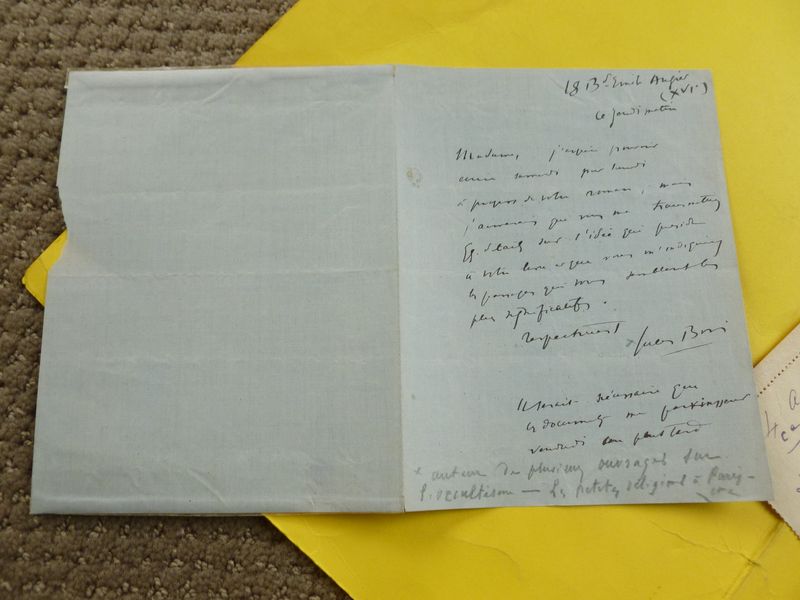 18 Bd Emile Augier
(XVIe)
ce jeudi matin
Madame, j'espère pouvoir
samedi par
à propos de votre roman, mais
j'aimerais que vous me transmettiez
qq. détails sur l'idée qui préside
à votre livre et que vous m'indiquiez
les passages qui vous semblent les
plus significatifs.
respectueust
* Jules Bois
Il serait nécessaire que
ces documents me parvinssent
vendredi au plus tard
* auteur de plusieurs ouvrages sur
l'occultisme — Les petites religions à Paris —